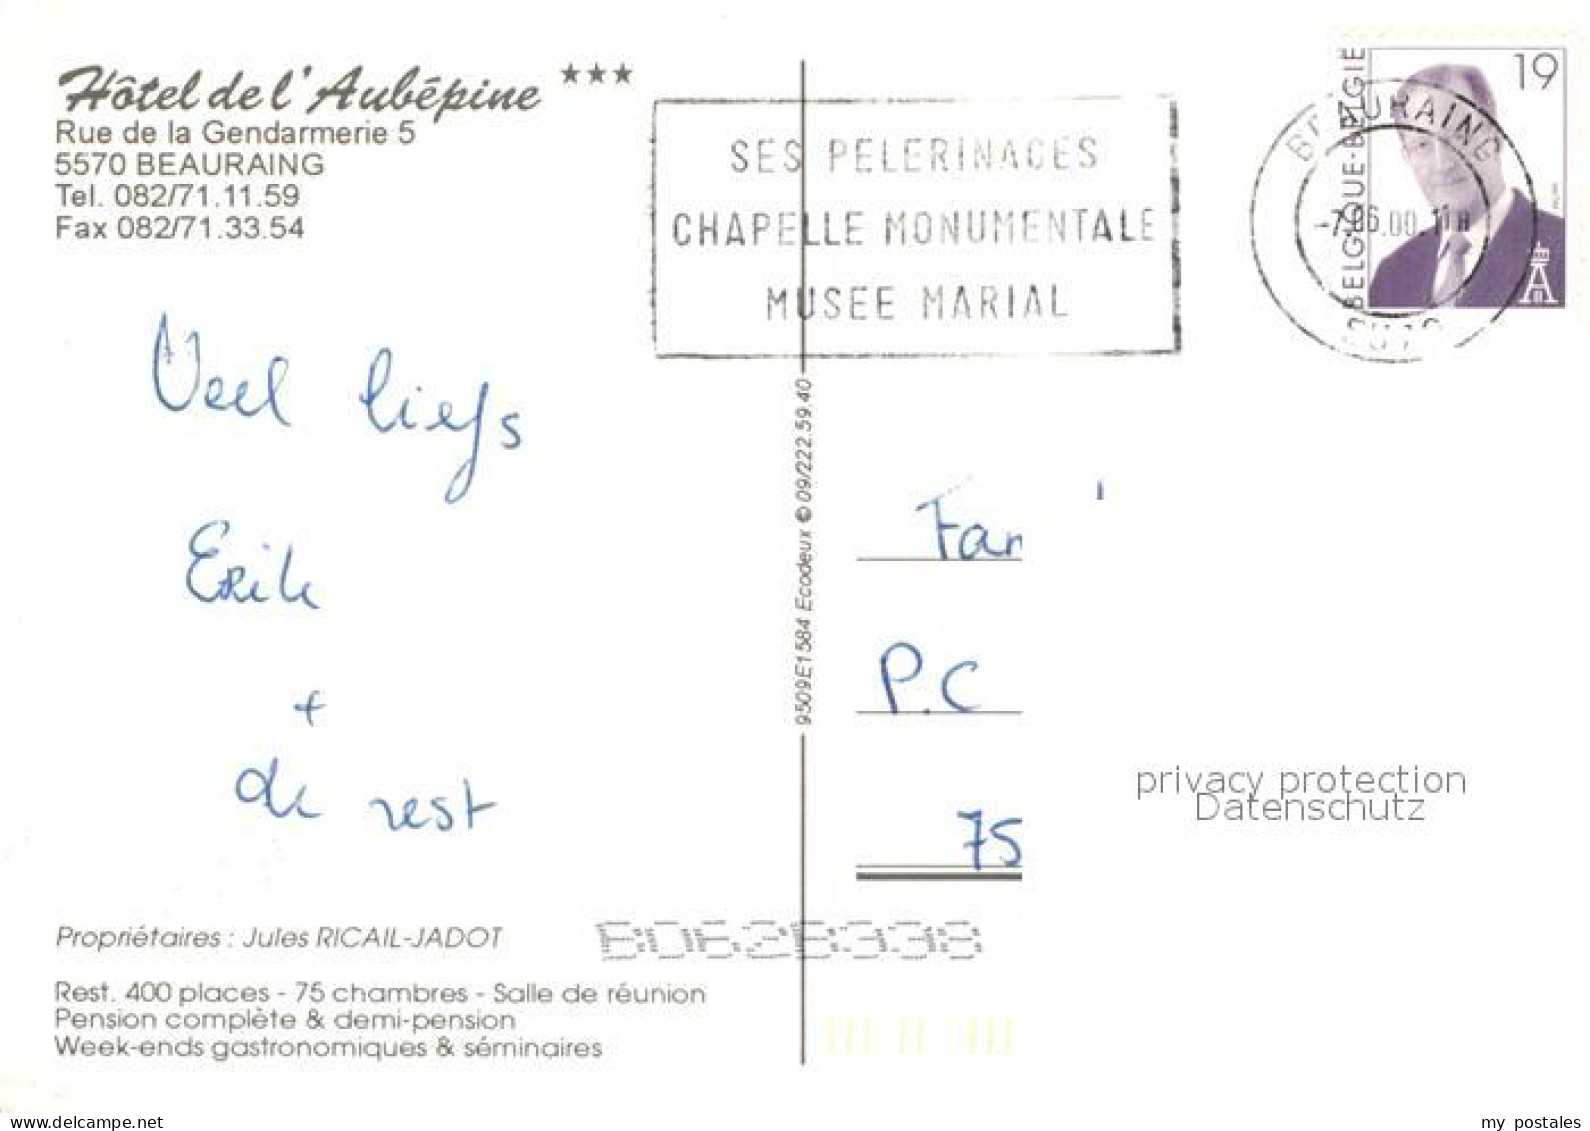 Hôtel de l'Aubépine ***
Rue de la Gendarmerie 5
5570 BEAURAING
Tel. 082/71.11.59
Fax 082/71.33.54
SES PELERINAGES
CHAPELLE MONUMENTALE
MUSEE MARIAL
19
BELGIQUE-BELGIE
BEAURAING
-7.06.00 11H
Veel liefs
Erik
+
de rest
9509E1584 Ecodeux © 09/222.59.40
P.C
75
privacy protection
Datenschutz
Propriétaires : Jules RICAIL-JADOT
Rest. 400 places - 75 chambres - Salle de réunion
Pension complète & demi-pension
Week-ends gastronomiques & séminaires
www.delcampe.net
my postales